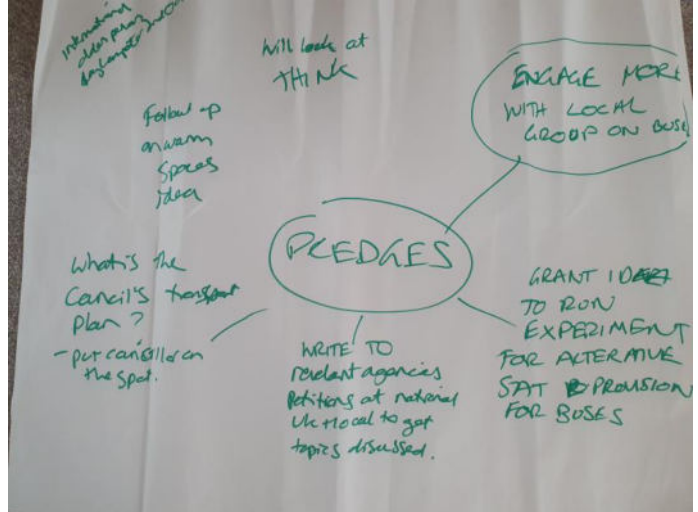 international
older persons
will look at
THINK
ENGAGE MORE
WITH LOCAL
GROUP ON BUSES
Follow up
on warm
spaces
idea
PLEDGES
What's the
Council's transport
plan?
- put cancillor on
the spot.
WRITE TO
relelant agencies
Petitions at national
UK + local to get
topics discussed.
GRANT IDEA
TO RUN
EXPERIMENT
FOR ALTERATIVE
SAT PROVISION
FOR BUSES